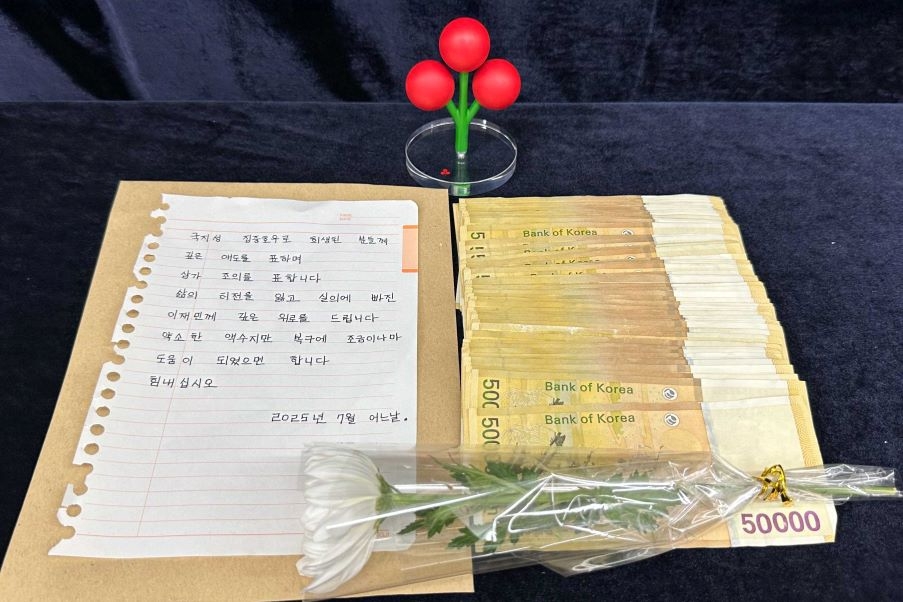 국지성 집중호우로 희생된 분들께
깊은 애도를 표하며
삼가 조의를 표합니다
삶의 터전을 잃고 실의에 빠진
이재민께 깊은 위로를 드립니다
약소한 액수지만 복구에 조금이나마
도움이 되었으면 합니다
힘내십시오
2025년 7월 어느날.
Bank of Korea
Bank of Korea
Bank of Korea
50000